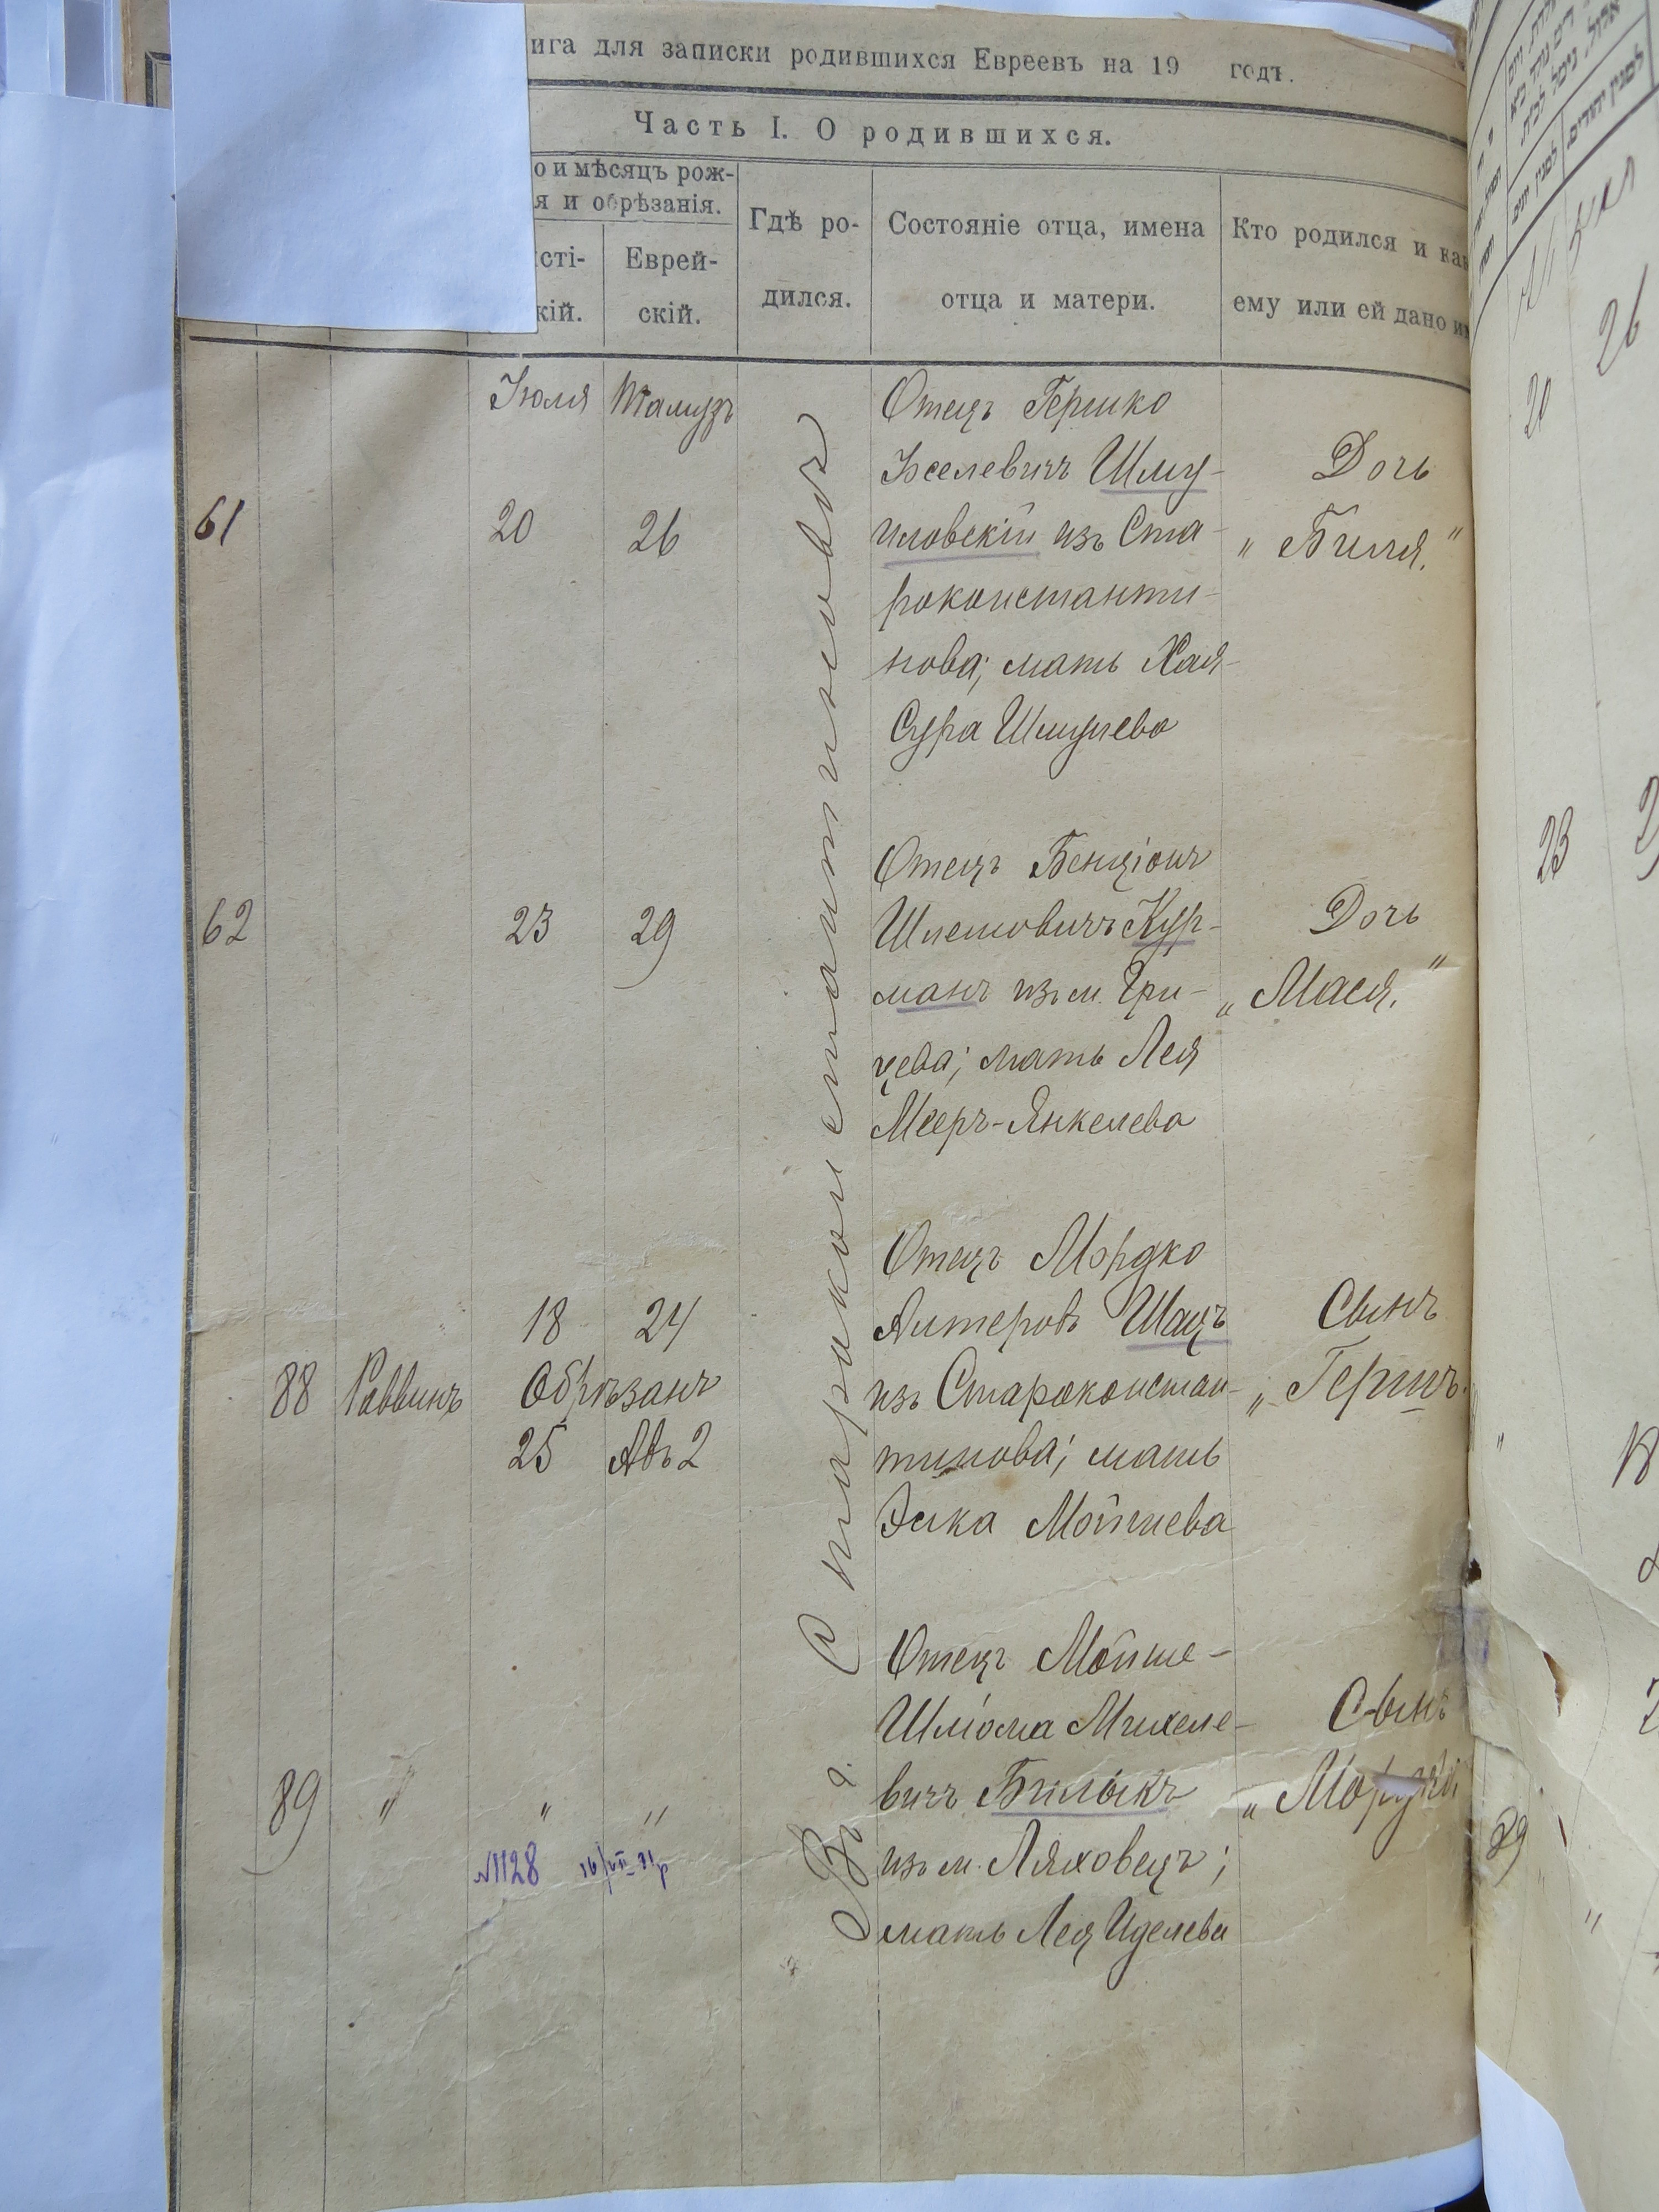 ига для записки родившихся Евреевъ на 19 годъ.
Часть I. О родившихся.
о и мѣсяцъ рож-
я и обрѣзанія.
сті-
кій.
Еврей-
скій.
Гдѣ ро-
дился.
Состояніе отца, имена
отца и матери.
Кто родился и как
ему или ей дано им
Июля Тамузъ
61 20 26
Въ г. Староконстантиновѣ
Отецъ Гершко
Іоселевичъ Шму-
иловскій изъ Ста-
роконстанти-
нова; мать Хая
Сура Шмулева
Дочь
„Биля."
62 23 29
Отецъ Бенціонъ
Шлемовичъ Кур-
манъ изъ м. Гри-
цева; мать Лея
Мееръ-Янкелева
Дочь
„Мася."
18 24
88 Раввинъ Обрѣзанъ
25 Авъ 2
Отецъ Мордко
Алтеровъ Шацъ
изъ Староконстан-
тинова; мать
Элка Мошкова
Сынъ
„Гершъ.
89 " " "
№1128
Отецъ Мойше-
Шлома Михеле-
вичъ Билыкъ
изъ м. Ляховецъ;
мать Лея Иделева
Сынъ
20
26
23
18
29